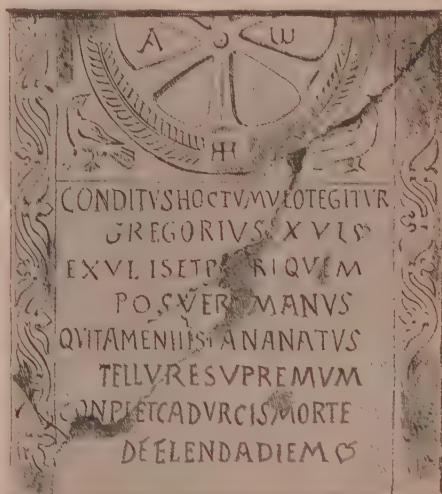 A ω
CONDITVSHOCTVMVLOTEGITVR
GREGORIVS XVLS
EXVLISETP RIQVEM
POSVER MANVS
QVITAMENHISPANANATVS
TELLVRESVPREMVM
CONPLETCADVRCISMORTE
DEFLENDADIEM